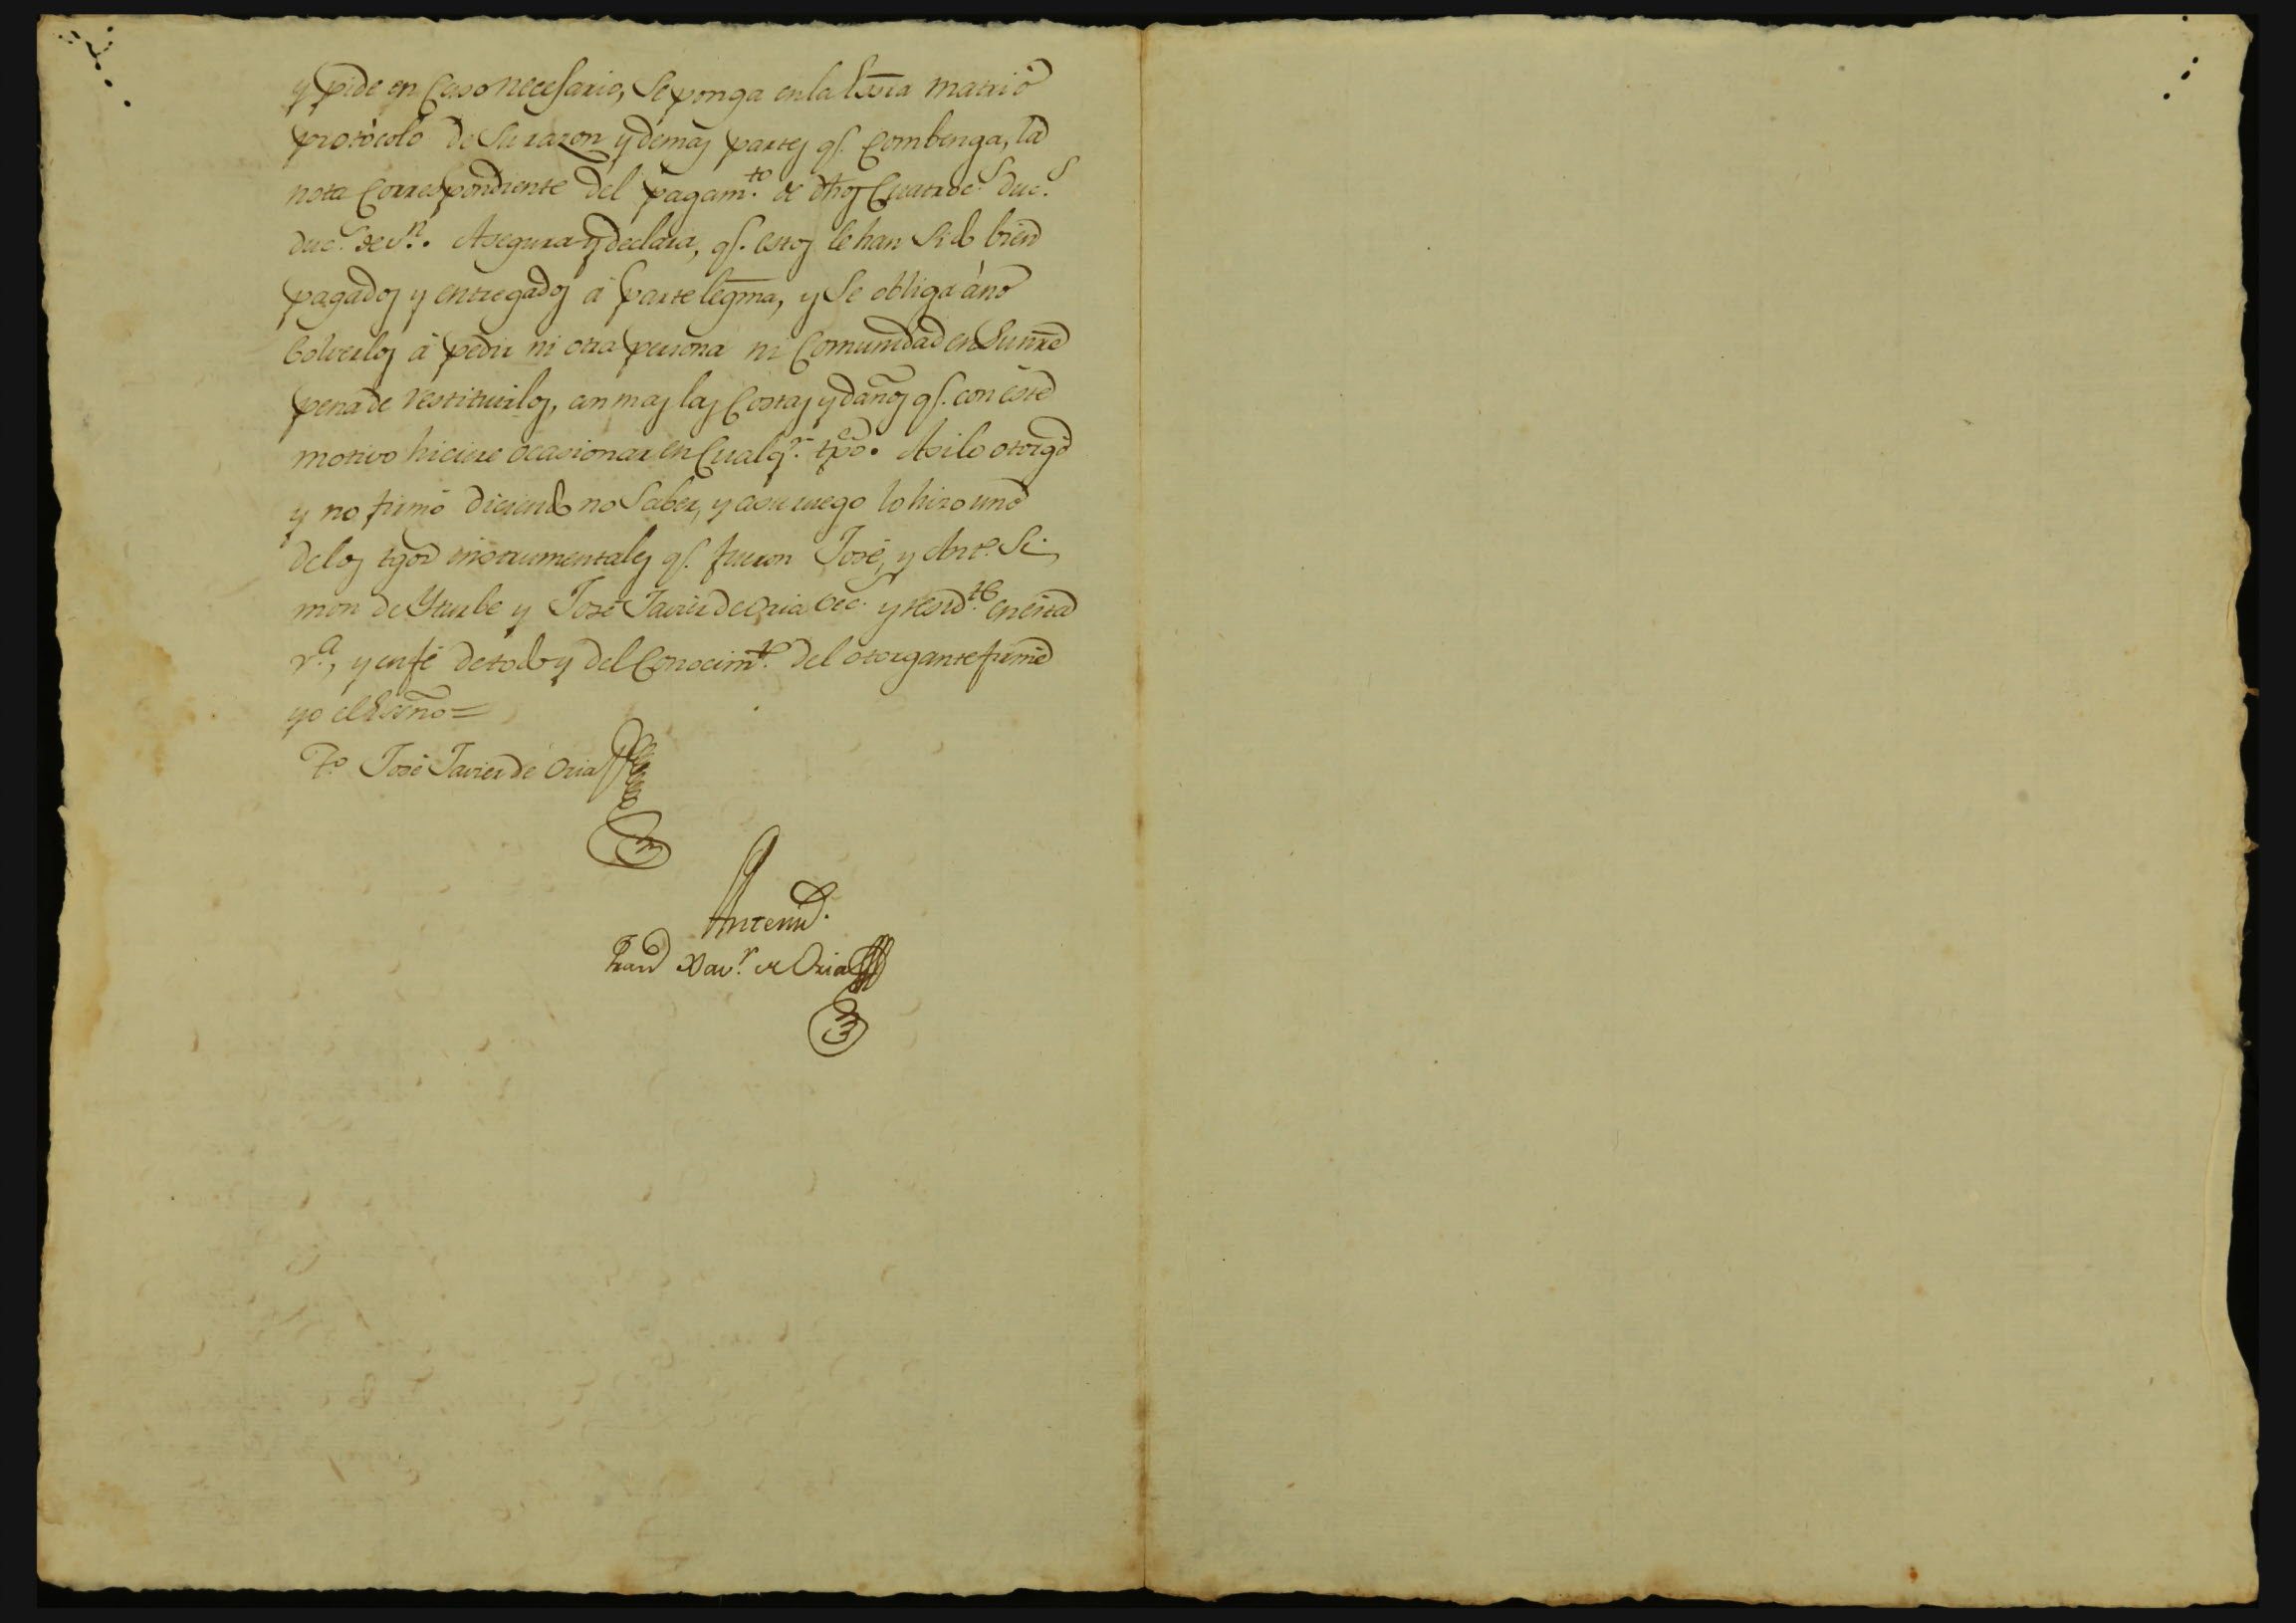 y pide en Caso necesario, Se ponga en la Essra matriò
protòcolo de Su razon y demas partes qe. Combenga, la
nota Correspondiente del pagam.to de dhos Cuatroc.s duc.s
duc.s de v.n. Asegura y declara, qe. estos le han Sido bien
pagados y entregados à parte legma, y Se obliga àno
bolverlos à pedir ni otra persona ni Comunidad en Su nre
pena de restituirlos, con mas las Costas y daños qe. con este
motivo hiciere ocasionar en Cualq.r tpo. Asi lo otorgò
y no firmò diciendo no Saber, y a su ruego lo hizo uno
delos tgos instrumentales qe. fueron José, y Ant.o Si-
mon de Yturbe y José Javier de Oria vec. y resid.tes en esta
v.a, y en fé de todo y del Conocim.to del otorgante firmé
yo el Essno=
T.o José Javier de Oria
Antemi.
Fran.co Xav.r de Oria